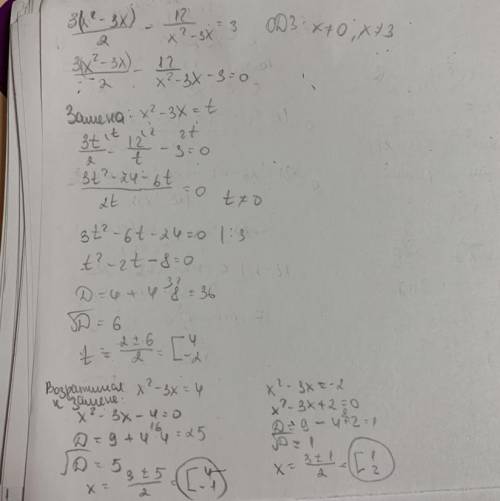 3(x² - 3x)/2 - 12/(x² - 3x) = 3 ОДЗ: x ≠ 0, x ≠ 3
3(x² - 3x)/2 - 12/(x² - 3x) - 3 = 0
Замена: x² - 3x = t
3t/2 - 12/t - 3 = 0
(3t² - 24 - 6t)/2t = 0 t ≠ 0
3t² - 6t - 24 = 0 | : 3
t² - 2t - 8 = 0
D = 4 + 4·8 = 36
√D = 6
t = (2 ± 6)/2 = [4 -2
Возвратимся к замене: x² - 3x = 4
x² - 3x - 4 = 0
D = 9 + 4·4 = 25
√D = 5
x = (3 ± 5)/2 = [4 -1
x² - 3x = -2
x² - 3x + 2 = 0
D = 9 - 4·2 = 1
√D = 1
x = (3 ± 1)/2 = [1 2